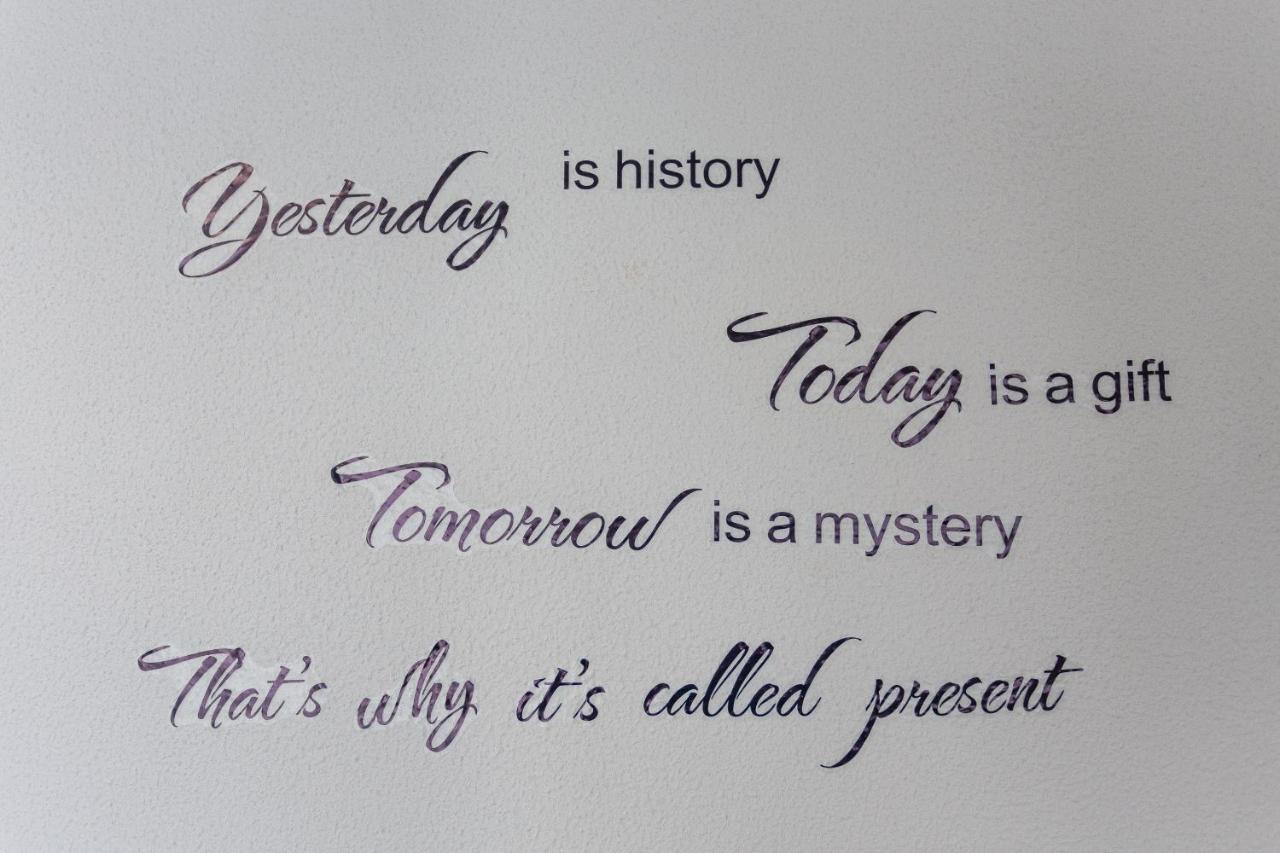 Yesterday is history
Today is a gift
Tomorrow is a mystery
That's why it's called present